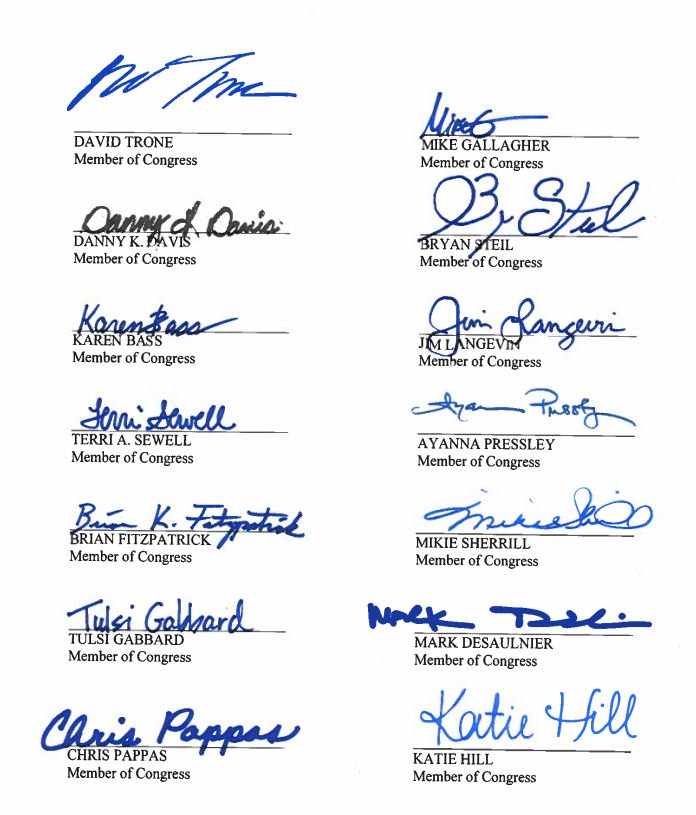 DAVID TRONE
Member of Congress
Danny K. Davis
DANNY K. DAVIS
Member of Congress
Karen Bass
KAREN BASS
Member of Congress
Terri Sewell
TERRI A. SEWELL
Member of Congress
Brian K. Fitzpatrick
BRIAN FITZPATRICK
Member of Congress
Tulsi Gabbard
TULSI GABBARD
Member of Congress
Chris Pappas
CHRIS PAPPAS
Member of Congress
Mike G
MIKE GALLAGHER
Member of Congress
Steil
BRYAN STEIL
Member of Congress
Jim Langevin
JIM LANGEVIN
Member of Congress
Ayanna Pressley
AYANNA PRESSLEY
Member of Congress
Mikie Sherrill
MIKIE SHERRILL
Member of Congress
Mark
MARK DESAULNIER
Member of Congress
Katie Hill
KATIE HILL
Member of Congress